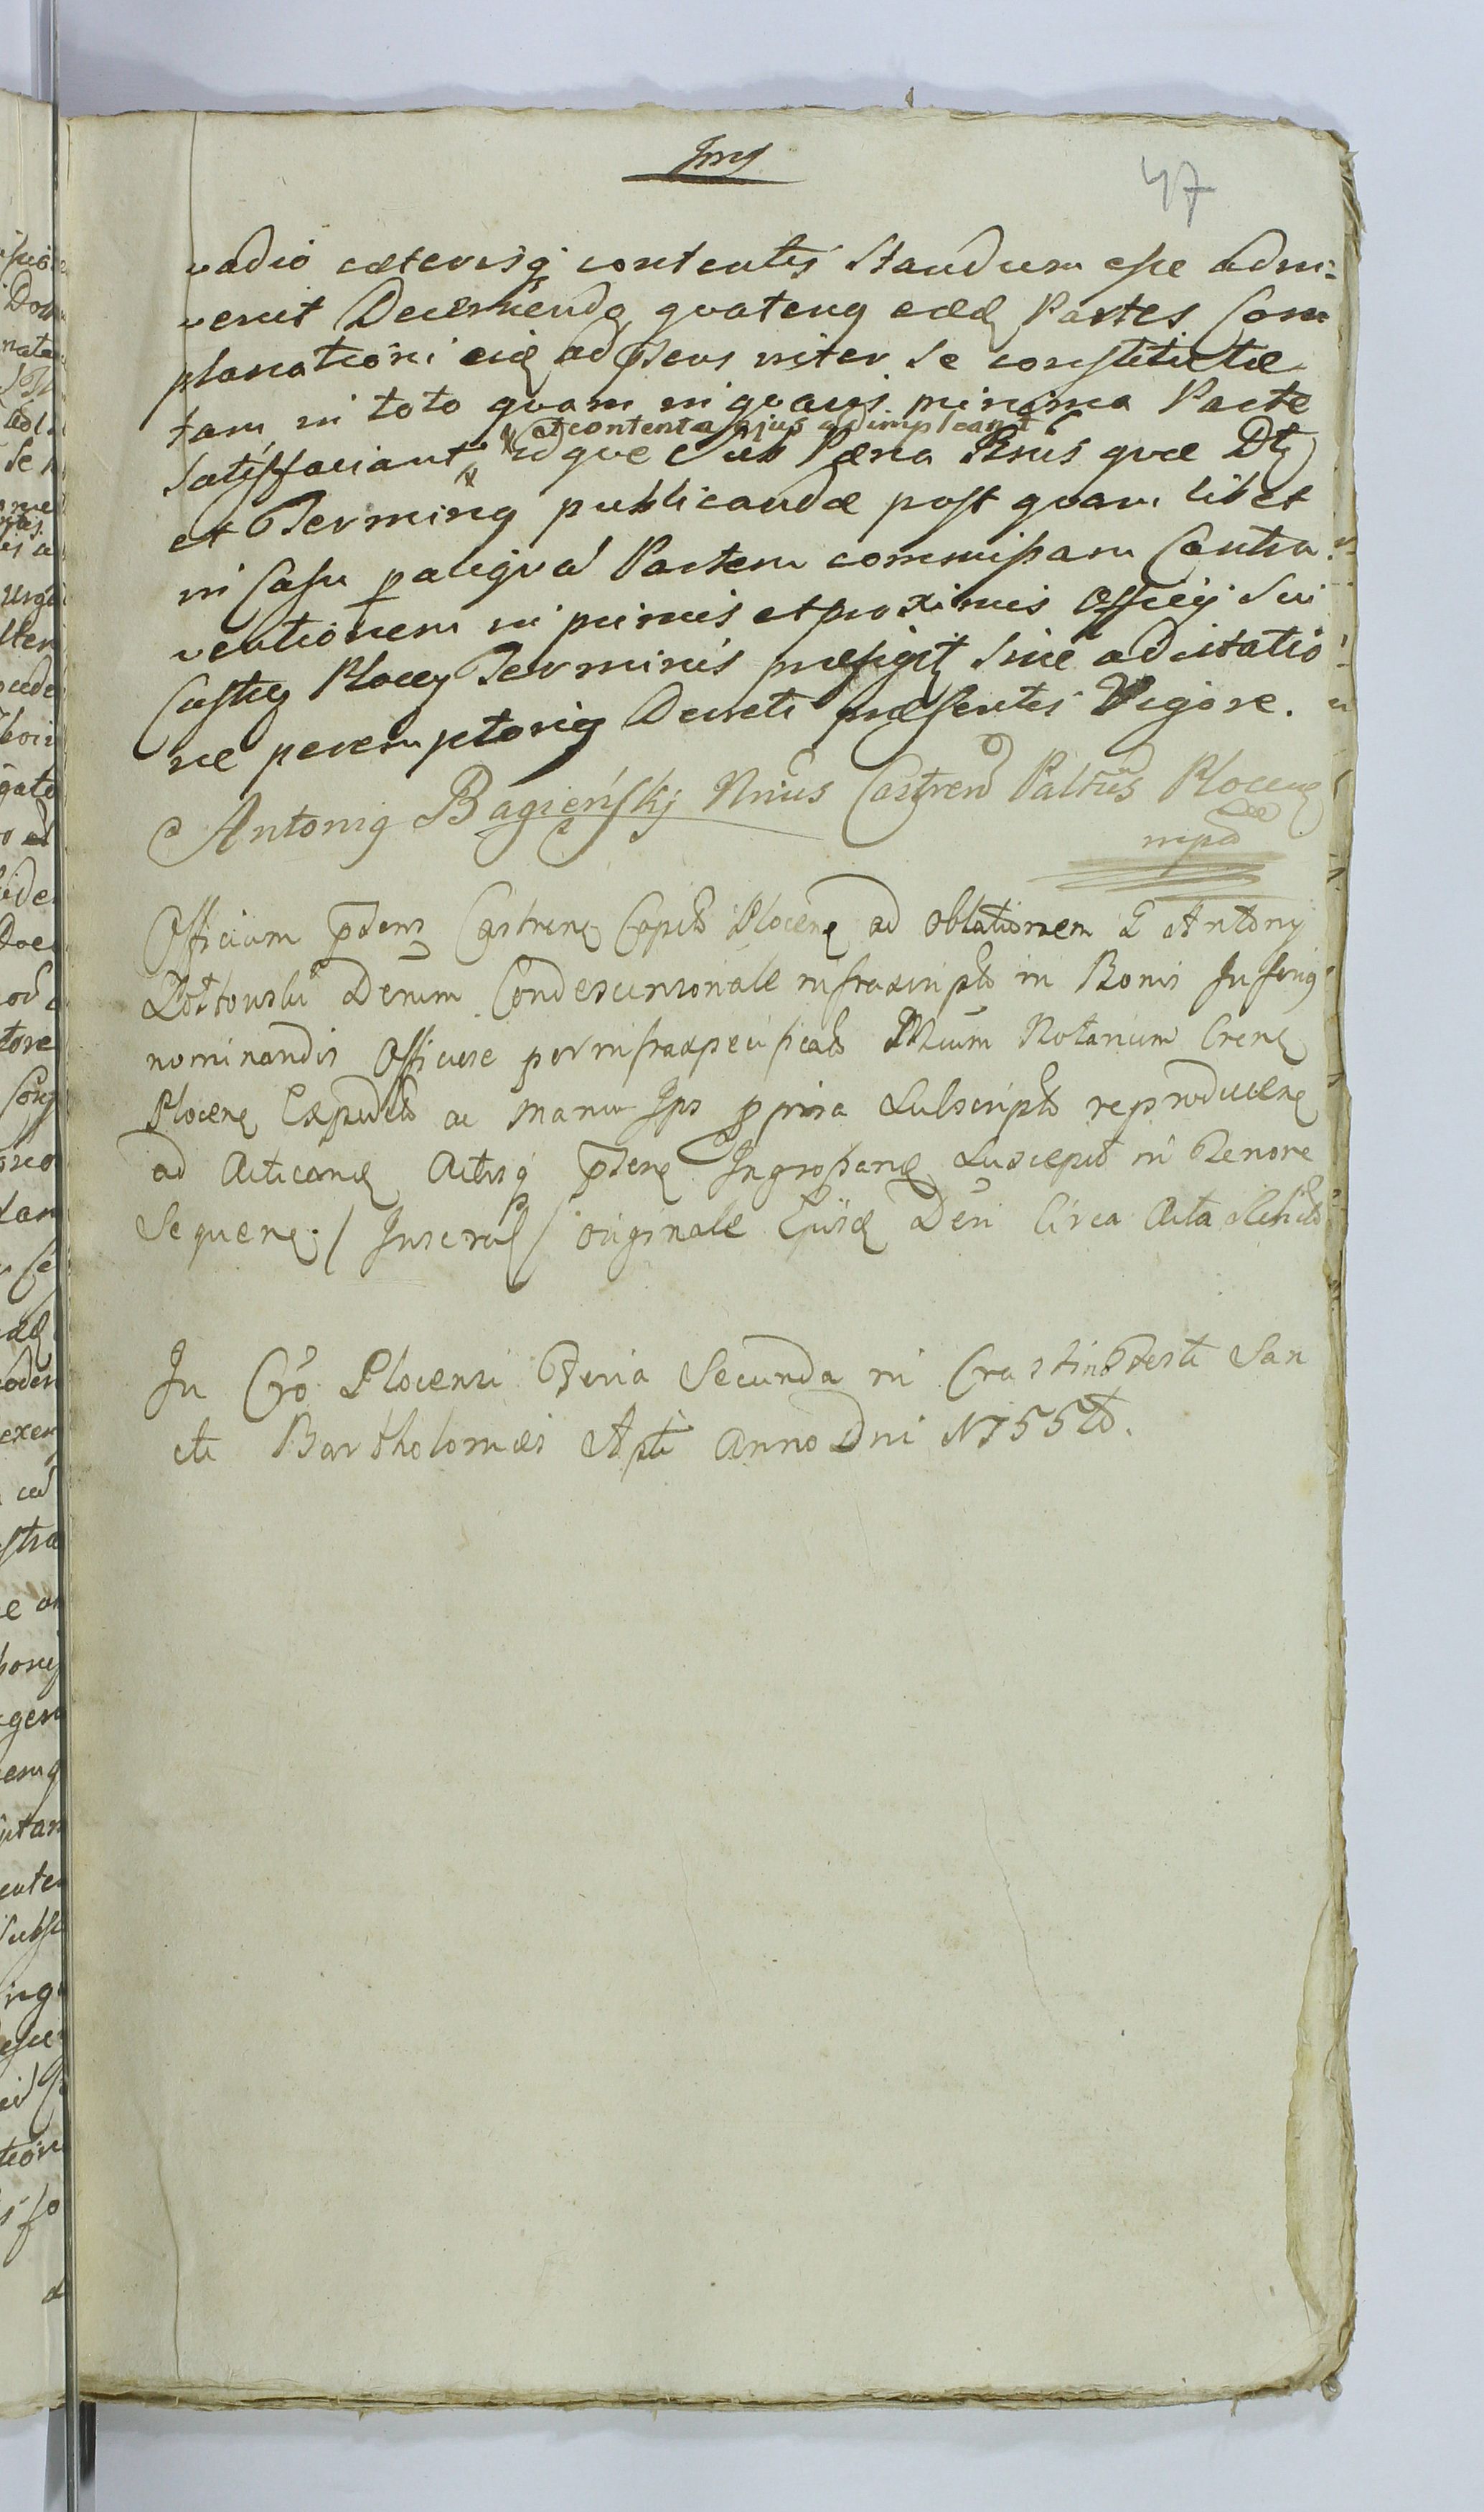 47
vadio cæterisq contentis Standum esse adin=
venit Decernendo quateng eæd Partes Com
planationi eid ad psens inter Se constitutæ
tam in toto quam in quavis minima Parte
et contenta ejus adimpleant
Satisfaciant idque Sub Pæna Bnis quæ Dtq
et Terming publicandæ post quam libet
in Casu p aliquā Partem commissam Contra
ventionem in primis et proximis Officij Sui
Castrs Plocen Terminis præfigit Sine adcitatio
ne peremptorie Decreti præsentis Vigore.
Antonig Bagieński Nrius Castren Paltus Plocens
mpd
Officium psens Castrens Capit Plocens ad oblationem G Antony
Lottowski Decrum Condescensionale infrascript in Bonis Inferiq
nominandis Officiose per infraspecificat Mcum Notarium Crens
Plocens Expedit ac manu Ips ppria Subscript reproducens
ad Acticand Actisq psens Ingrossand Suscepit in Tenore
Sequens. / Inserat / originale Ejusd Deri Circa Acta Relicto
In Cro Plocensi Feria Secunda in Crastino Festi San
cti Bartholomæi Apli Anno Dni N 755to.